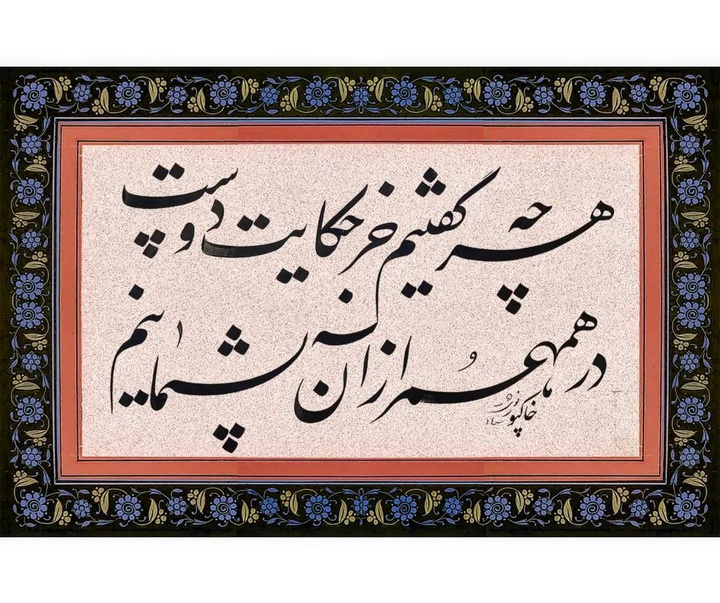 هر چه گفتیم جز حکایت دوست
در همه عمر از آن پشیمانیم